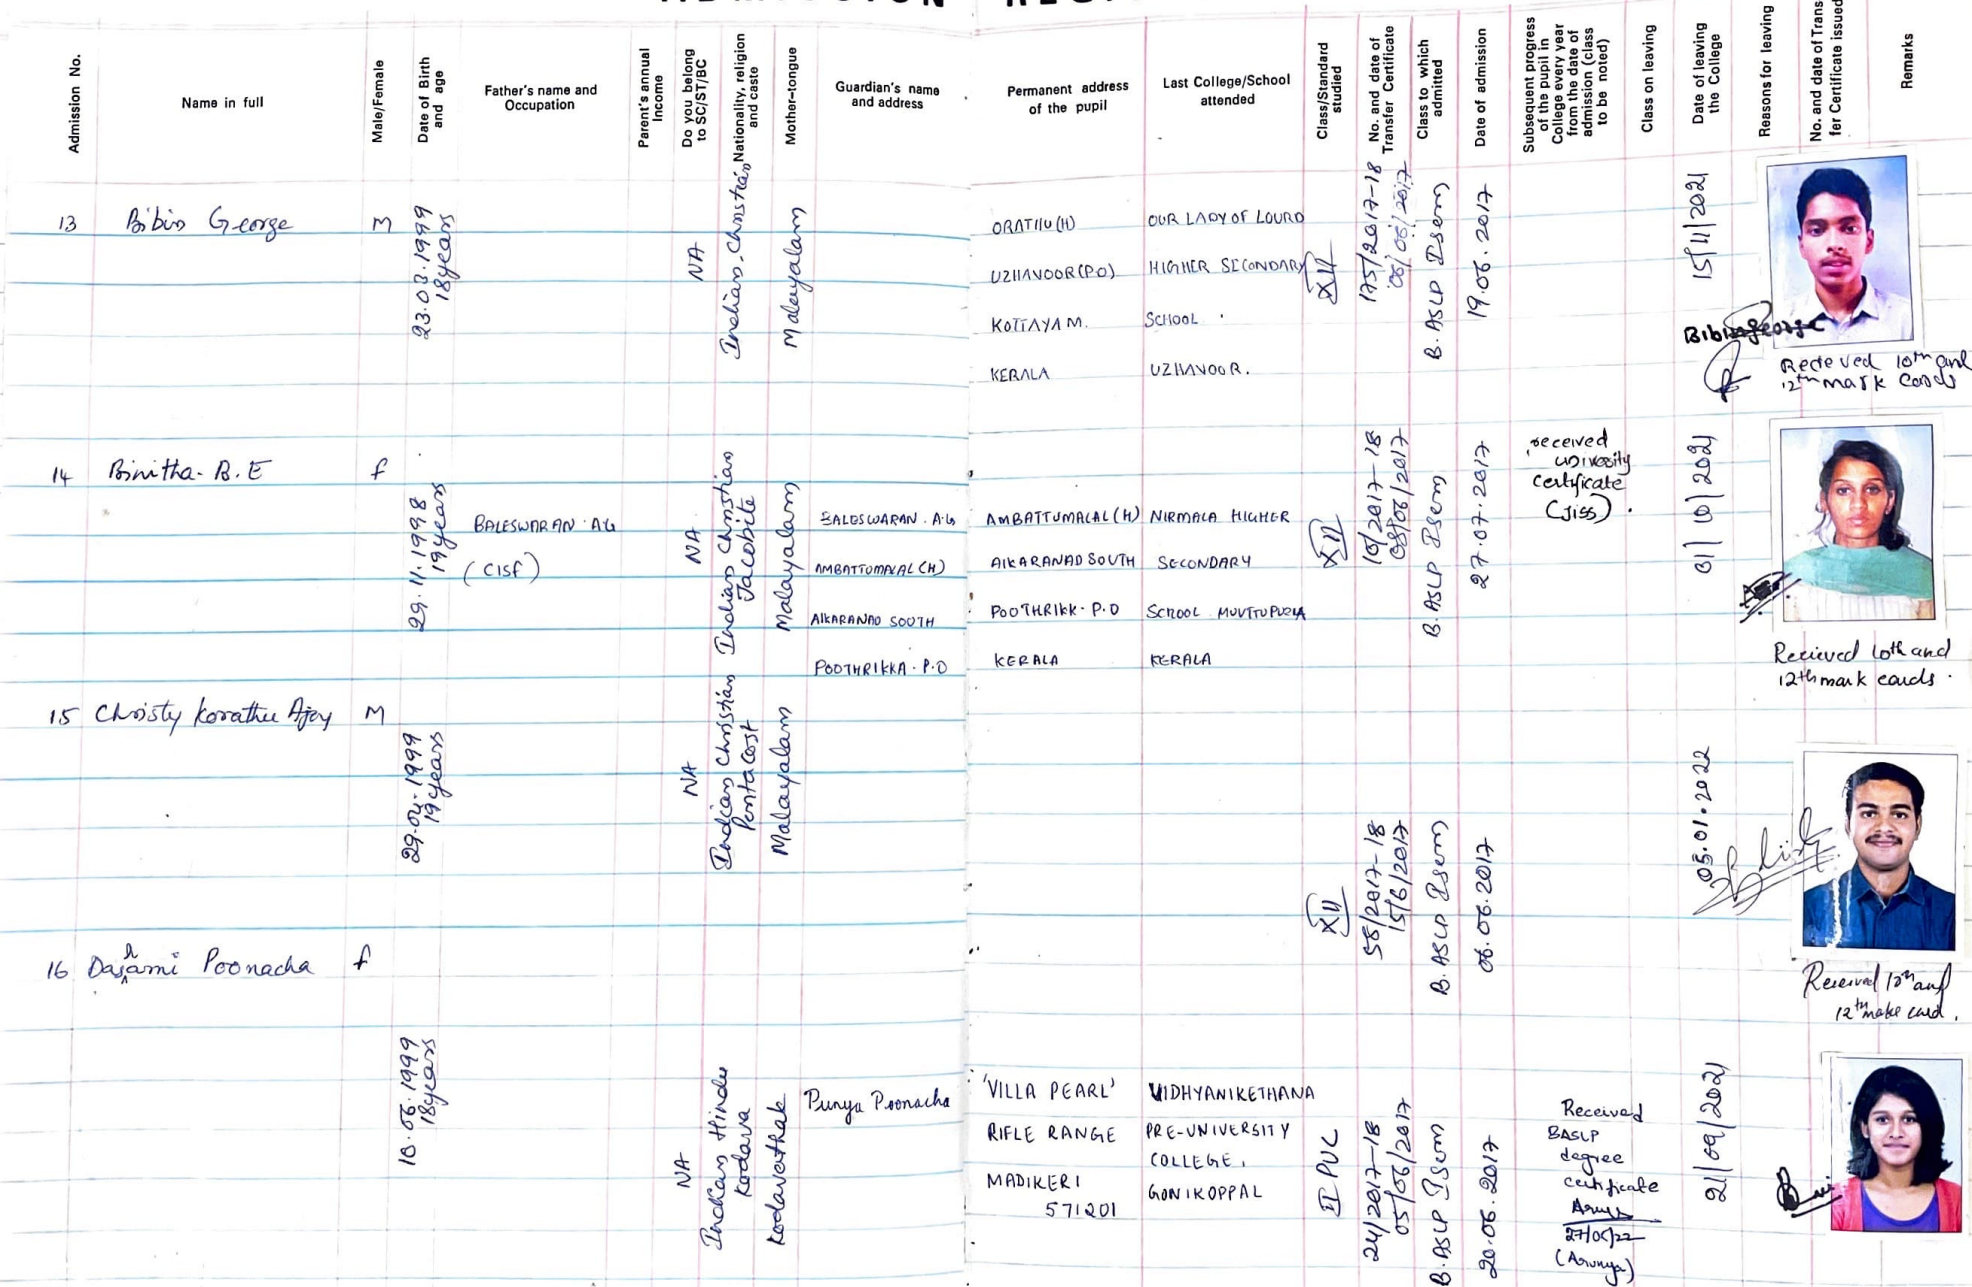 Admission No.
Name in full
Male/Female
Date of Birth
and age
Father's name and
Occupation
Parent's annual
Income
Do you belong
to SC/ST/BC
Nationality, religion
and caste
Mother-tongue
Guardian's name
and address
Permanent address
of the pupil
Last College/School
attended
Class/Standard
studied
No. and date of
Transfer Certificate
Class to which
admitted
Date of admission
Subsequent progress
of the pupil in
College every year
from the date of
admission (class
to be noted)
Class on leaving
Date of leaving
the College
Reasons for leaving
No. and date of Trans
fer Certificate issued
Remarks
13
Bibin George
M
23.03.1999
18years
NA
Indian, Christian
Malayalam
UZHAVOOR (P.O)
KOTTAYAM.
KERALA
OUR LADY OF LOURD
HIGHER SECONDARY
SCHOOL
UZHAVOOR.
XII
175/2017-18
06/06/2017
B. ASLP I sem
19.06.2017
15/11/2021
Bibin George
Recieved 10th and
12th mark cards
14
Binitha. B. E
f
29.11.1998
19years
BALESWARAN. A.G
(CISF)
NA
Indian Christian
Jacobite
Malayalam
BALESWARAN. A.G
AMBATTUMALAL (H)
AIKARANAD SOUTH
POOTHRIKKA. P.O
AMBATTUMALAL (H)
AIKARANAD SOUTH
POOTHRIKK. P.O
KERALA
NIRMALA HIGHER
SECONDARY
SCHOOL MUVTTUPUZLA
KERALA
XII
10/2017-18
08/06/2017
B. ASLP I sem
27.07.2017
received
university
certificate
(Jiss).
Recieved 10th and
12th mark cards.
15
Christy Korathu Ajoy
M
29.04.1999
19years
NA
Indian Christian
Pentacost
Malayalam
XII
58/2017-18
15/6/2017
B. ASLP I sem
06.06.2017
05.01.2022
Received 10th and
12th make card.
16
Dashami Poonacha
f
18years
NA
Indian Hindu
Kodava
Kodavathak
Punya Poonacha
'VILLA PEARL'
RIFLE RANGE
MADIKERI
571201
VIDHYANIKETHANA
PRE-UNIVERSITY
COLLEGE,
GONIKOPPAL
II PUC
24/2017-18
05/06/2017
B. ASLP I sem
20.06.2017
Received
BASLP
degree
certificate
(Arunya)
21/09/2021